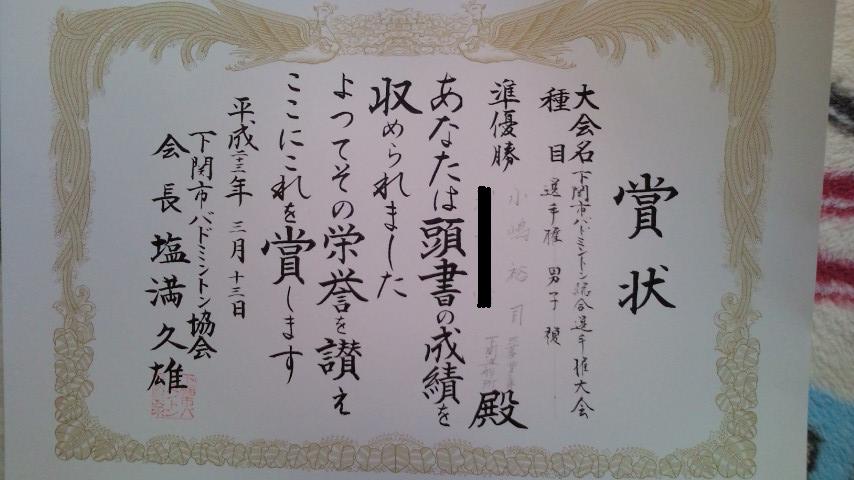 賞状
大会名 下関市バドミントン総合選手権大会
種目 選手権 男子複
準優勝
小嶋裕司
殿
あなたは頭書の成績を
収められました
よつてその栄誉を讃え
ここにこれを賞します
平成二十三年 三月 十三日
下関市バドミントン協会
会長 塩満久雄